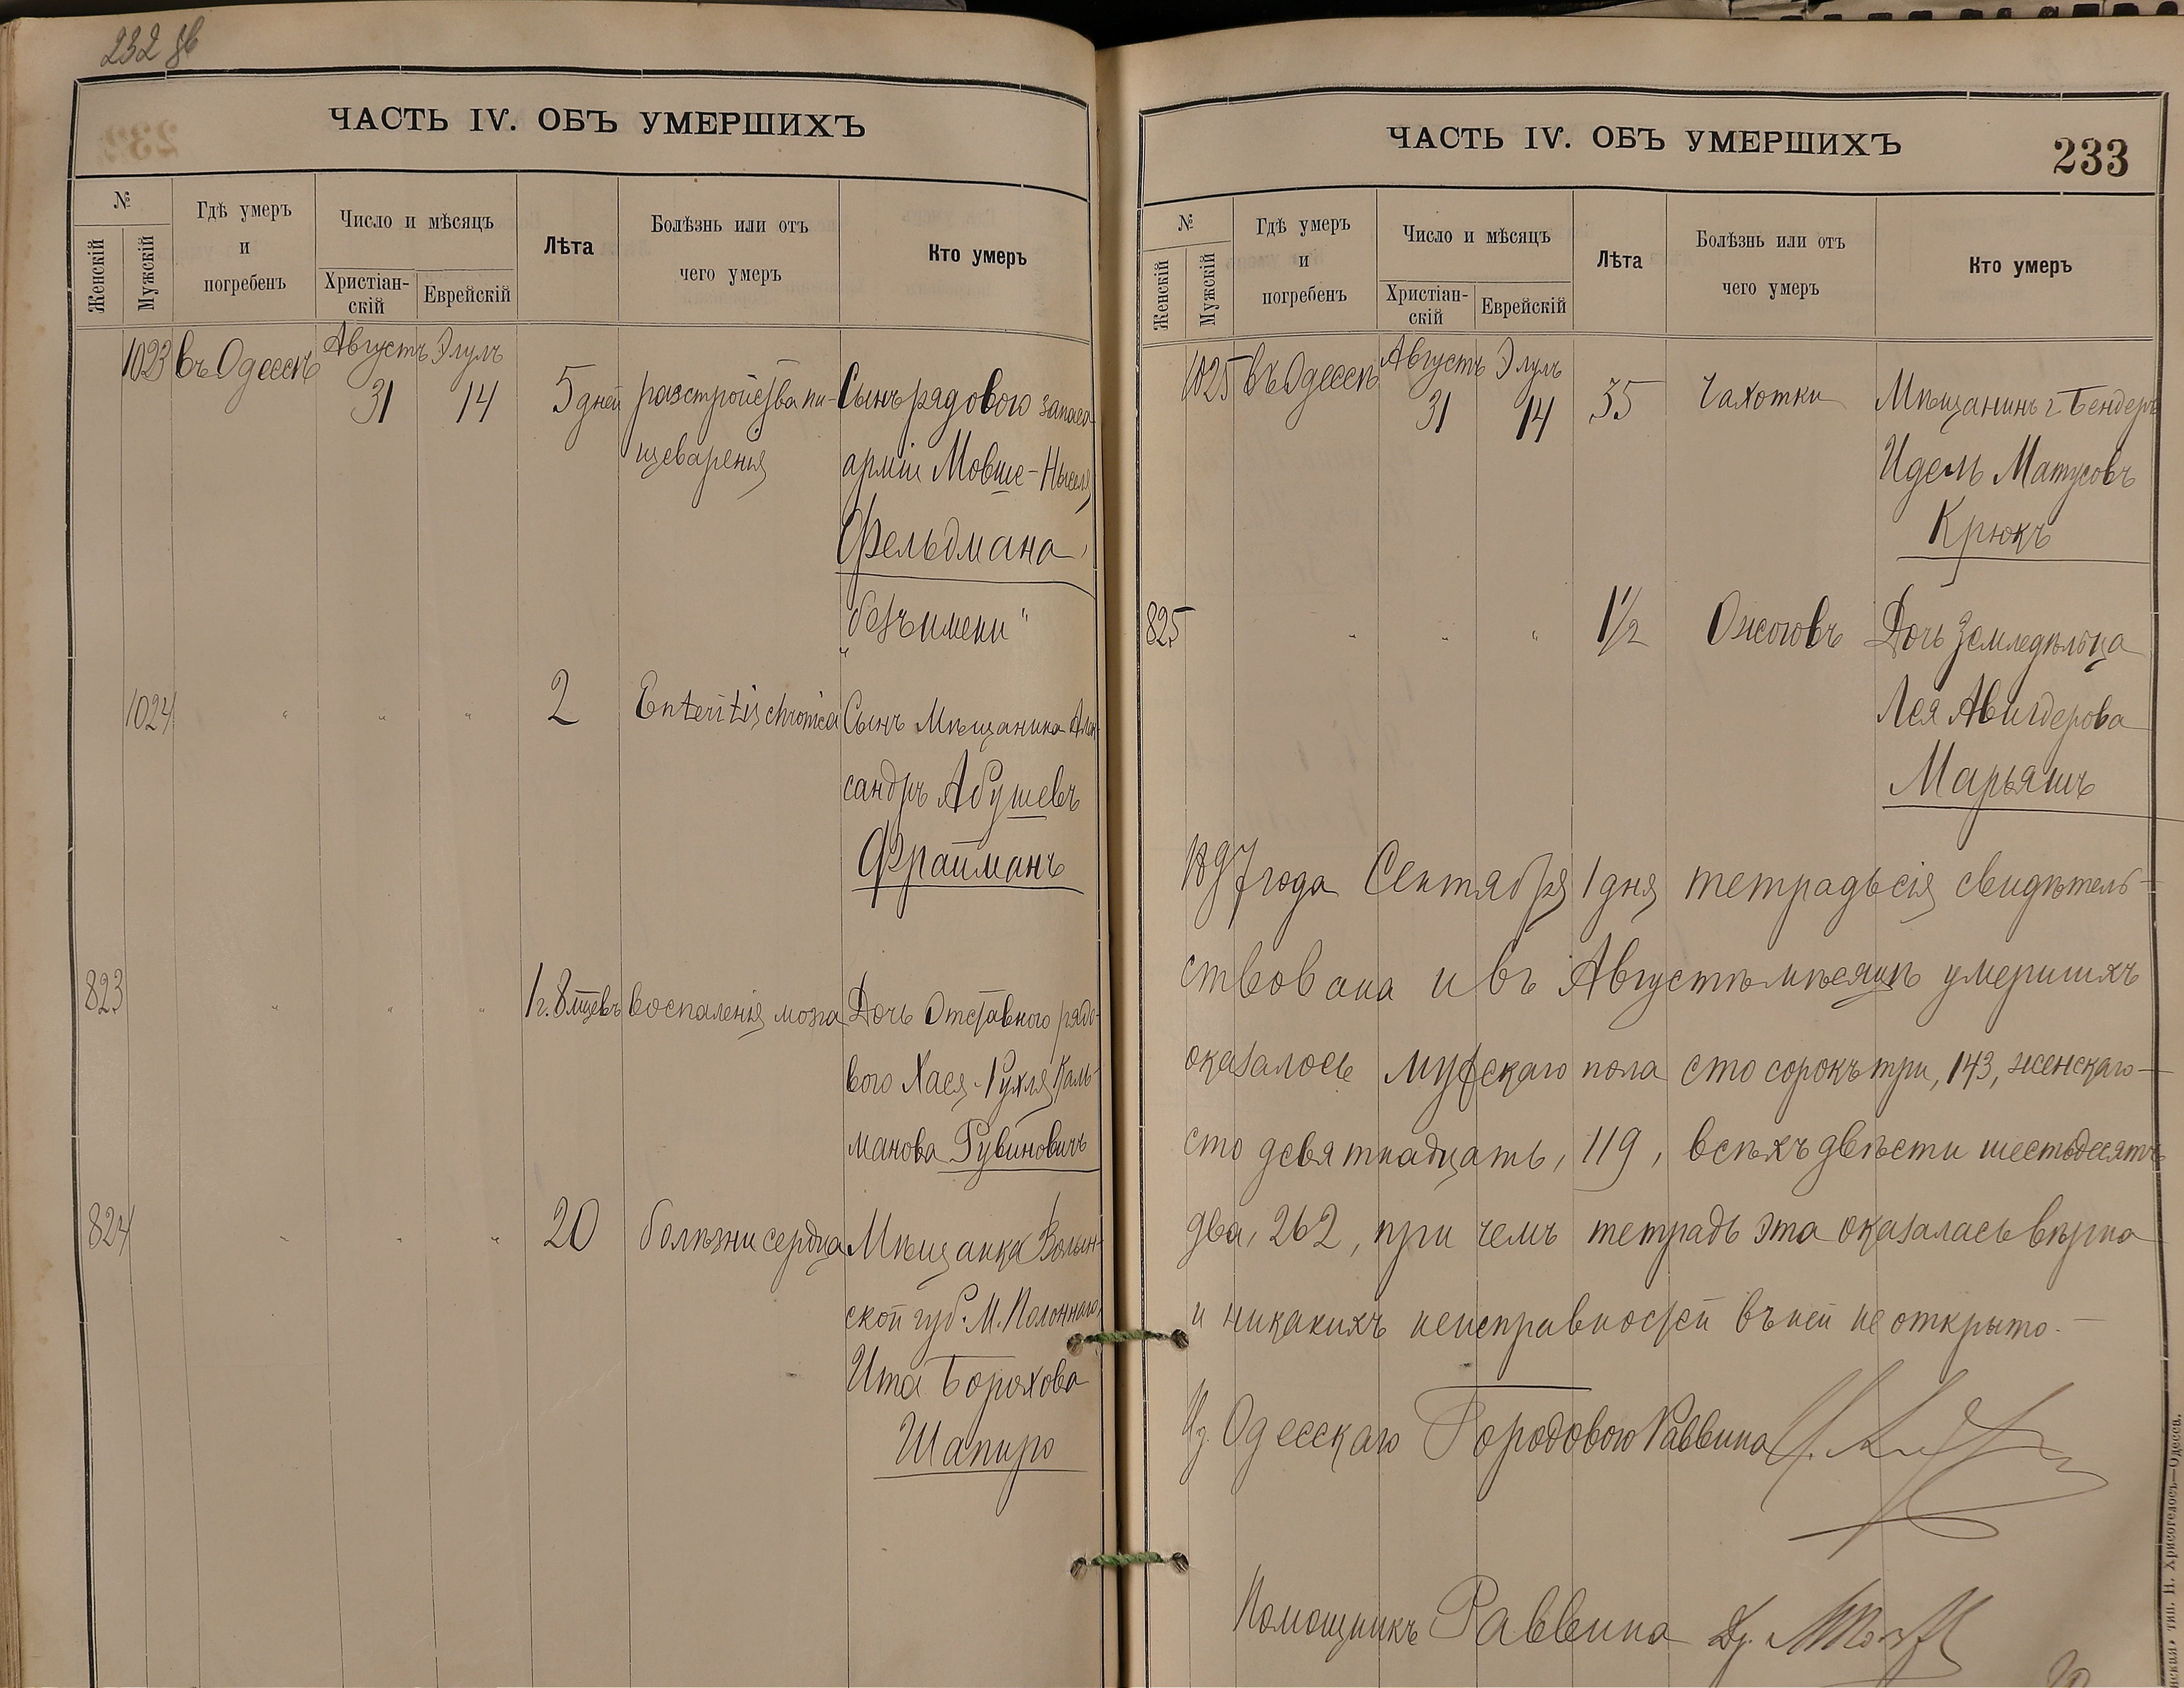 232 об
ЧАСТЬ IV. ОБЪ УМЕРШИХЪ
№
Женскій
Мужскій
Гдѣ умеръ
и
погребенъ
Число и мѣсяцъ
Христіан-
скій
Еврейскій
Лѣта
Болѣзнь или отъ
чего умеръ
Кто умеръ
1023 въ Одессѣ Августъ Элулъ
31 14 5 дней разстройства пи- Сынъ рядового запаса
щеваренія арміи Мовше-Нысeля
Фельдмана,
"безъ имени"
1024 " " " 2 Enteritis chronica Сынъ Мѣщанина Алек-
сандръ Абушевъ
Фрайманъ
823 " " " 1 г. 8 мцевъ воспаленія мозга Дочь Отставного рядо-
вого Хася-Рухля Каль-
манова Рубиновичъ
824 " " " 20 болѣзни сердца Мѣщанка Волын-
ской губ. М. Полоннаго,
Ита Борохова
Шапиро
ЧАСТЬ IV. ОБЪ УМЕРШИХЪ
233
№
Женскій
Мужскій
Гдѣ умеръ
и
погребенъ
Число и мѣсяцъ
Христіан-
скій
Еврейскій
Лѣта
Болѣзнь или отъ
чего умеръ
Кто умеръ
1025 въ Одессѣ Августъ Элулъ
31 14 35 Чахотки Мѣщанинъ г. Бендеръ
Идель Матусовъ
Крюкъ
825 " " " 1 1/2 Ожоговъ Дочь Земледѣльца
Лея Авигдерова
Марьяшъ
1897 года Сентября 1 дня тетрадь сія свидѣтель-
ствована и въ Августѣ мѣсяцѣ умершихъ
оказалось мужскаго пола сто сорокъ три, 143, женскаго —
сто девятнадцать, 119, всѣхъ двѣсти шестьдесятъ
два, 262, при чемъ тетрадь эта оказалась вѣрна
и никакихъ неисправностей въ ней не открыто. —
Одесскаго Городового Раввина
Помощникъ Раввина Др.
тип. И. Хрисогелосъ—Одесса.